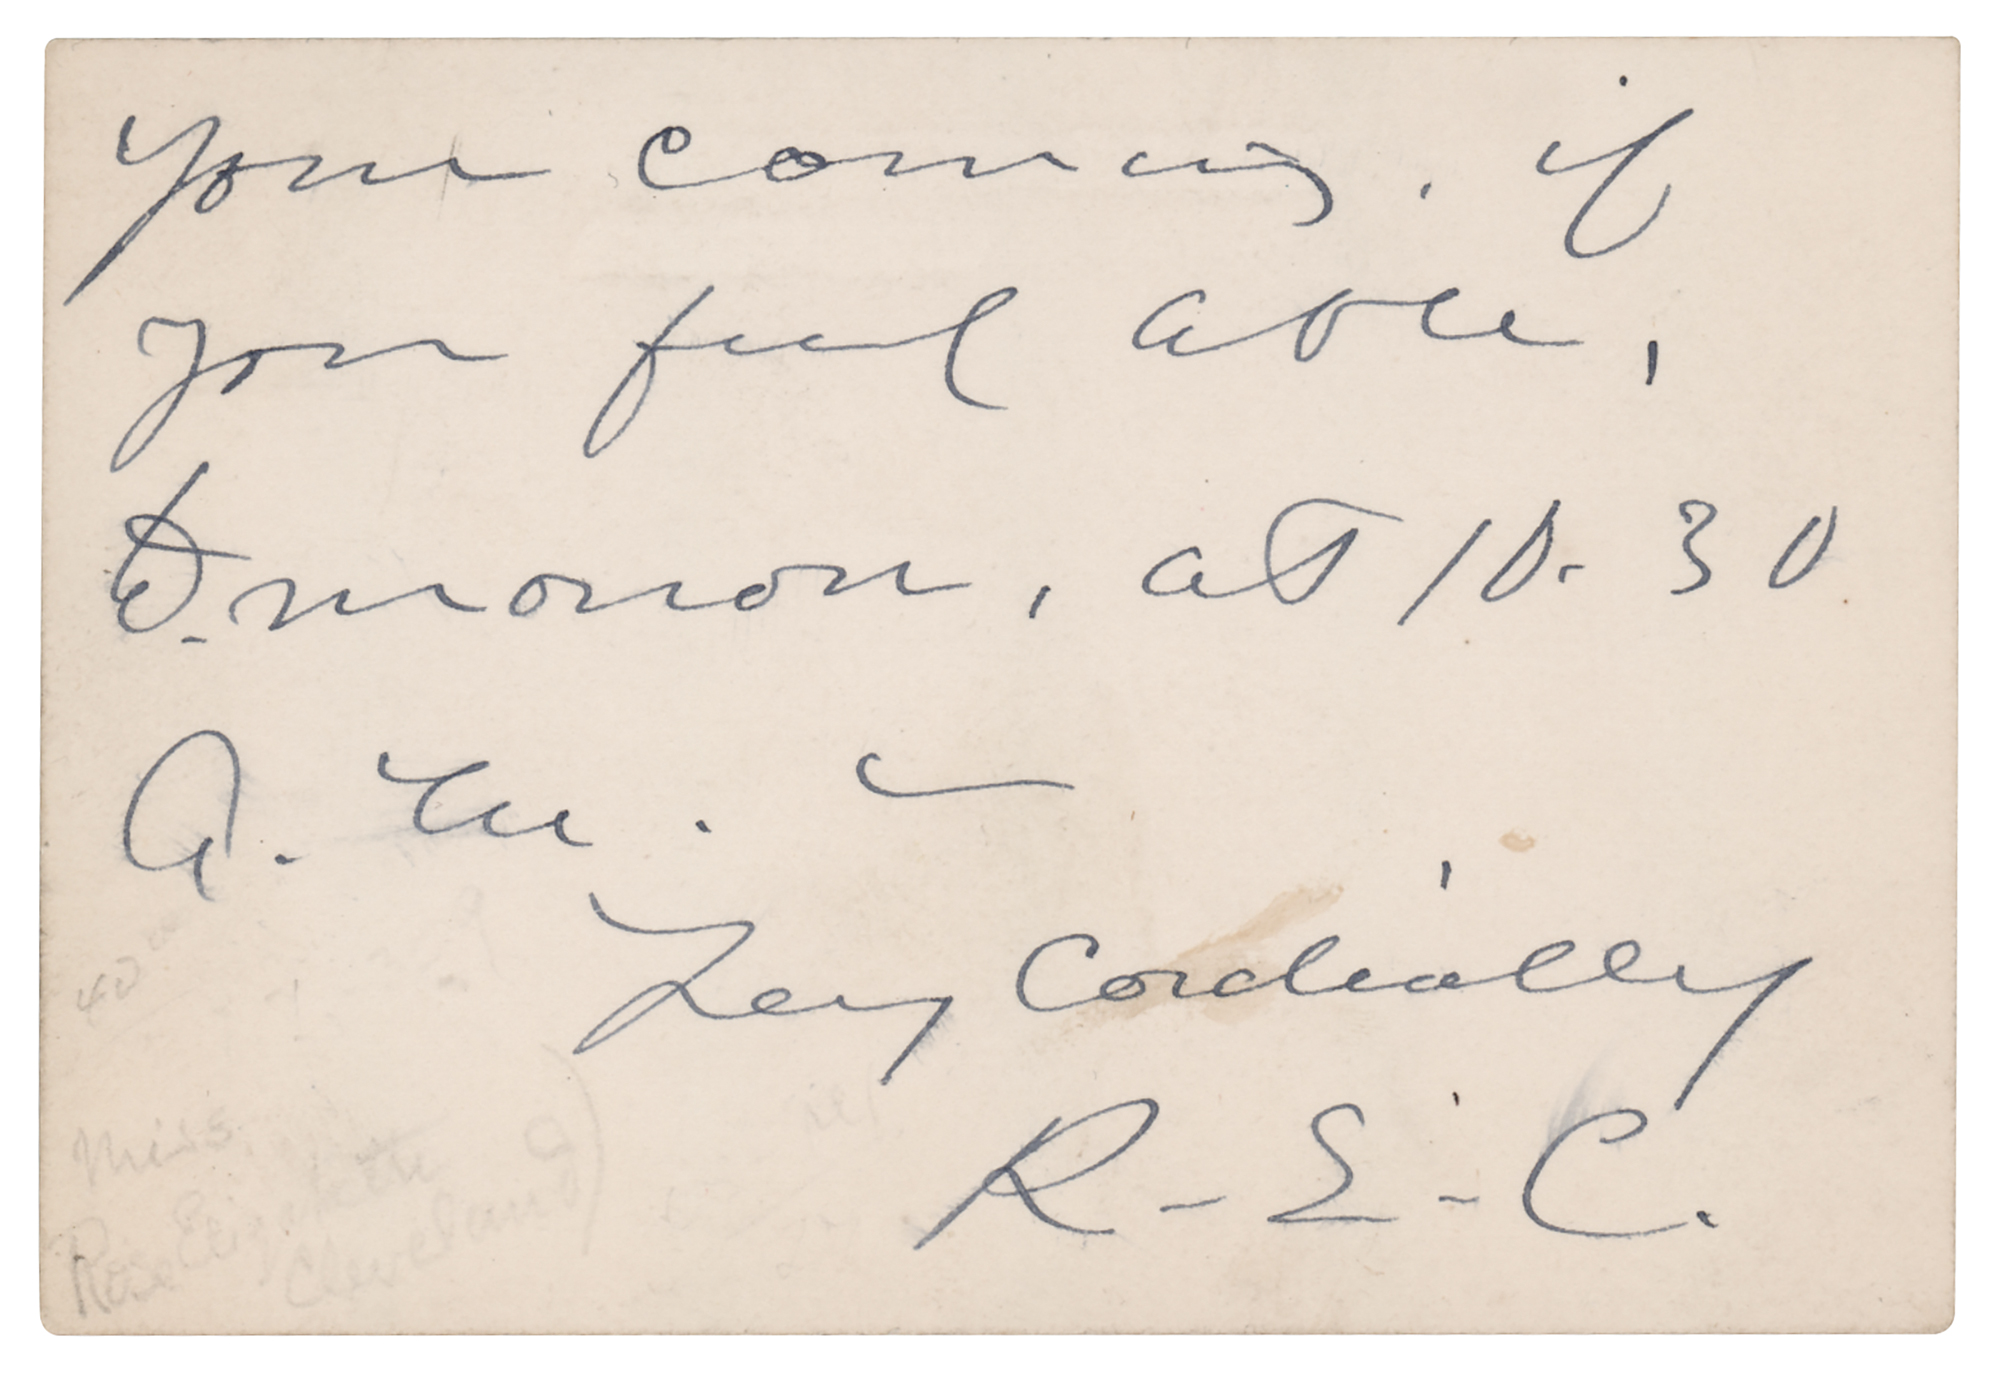 your coming, if
you feel able,
to-morrow, at 10-30
A. M.
Very Cordially
R-E-C.
40
Miss
Rose Elizabeth
Cleveland